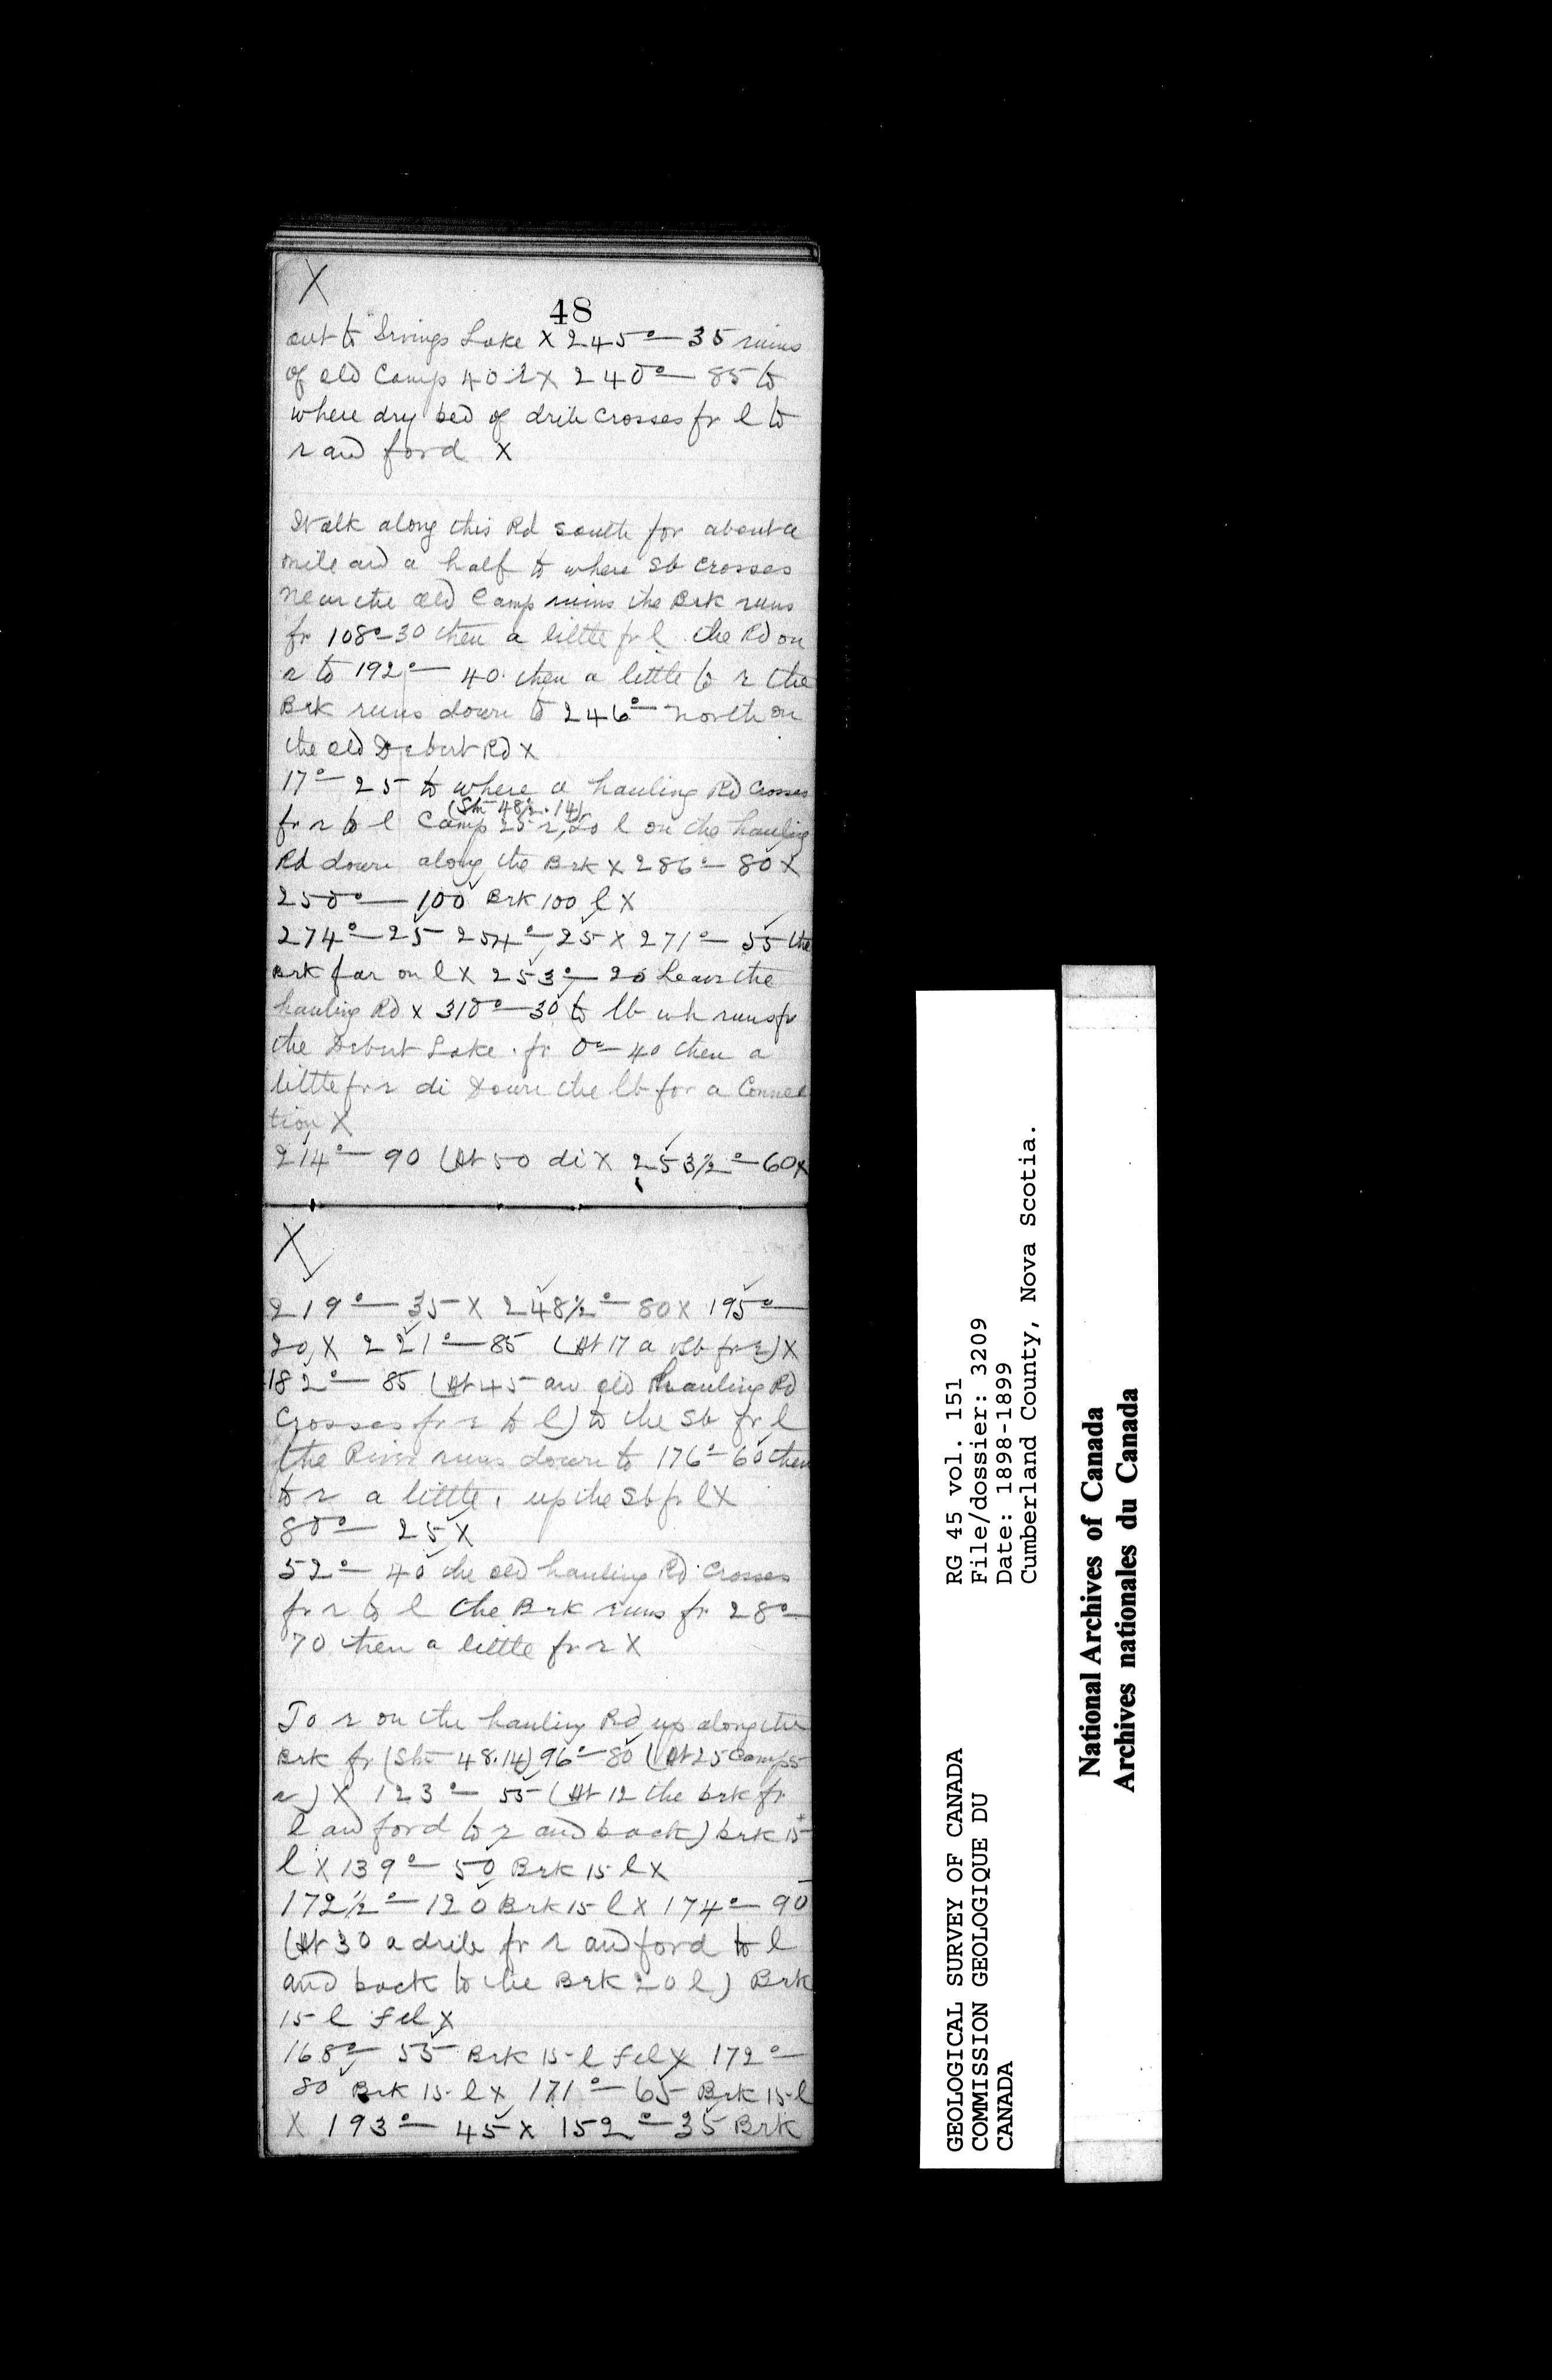 X
48
out to Irvings Lake X 245° — 35 ruins
of old Camp 40 l X 240° — 85 to
where dry bed of drib crosses fr l to
r and ford X
Walk along this Rd south for about a
mile and a half to where Sb crosses
near the old Camp ruins the Brk runs
fr 108° — 30 then a little fr l the Rd on
r to 192° — 40 then a little to r the
Brk runs down to 246° — north on
the old Debert Rd X
17° — 25 to where a hauling Rd crosses
(Stn 48½.14)
fr r to l Camp 25 r, to l on the hauling
Rd down along the Brk X 286° — 80 X
250° — 100 Brk 100 l X
274° — 25 254° — 25 X 271° — 55 the
Brk far on l X 253° — 20 Leave the
hauling Rd X 310° — 30 to lb wh runs fr
the Debert Lake . fr 0° — 40 then a
little fr r di Down the lb for a Connec
tion X
214° — 90 (At 50 di X 253½° — 60 X
X
219° — 35 X 248½° — 80 X 195° —
20 X 221° — 85 (At 17 a Sb fr r) X
182° — 85 (At 45 an old hauling Rd
Crosses fr r to l) to the Sb fr l
(the River runs down to 176° — 60 then
to r a little, up the Sb fr l X
80° — 25 X
52° — 40 the old hauling Rd Crosses
fr r to l the Brk runs fr 28° —
70 then a little fr r X
To r on the hauling Rd up along the
Brk fr (Stn 48.14) 96° — 80 (At 25 Camp 5
r) X 123° — 55 (At 12 the brk fr
l and ford to r and back) brk 15
l X 139° — 50 Brk 15 l X
172½° — 120 Brk 15 l X 174° — 90
(At 30 a drib fr r and ford to l
and back to the Brk 20 l) Brk
15 l fel X
168° — 55 Brk 15 l fel X 172° —
80 Brk 15 l X 171° — 65 Brk 15 l
X 193° — 45 X 152° — 35 Brk
GEOLOGICAL SURVEY OF CANADA
COMMISSION GEOLOGIQUE DU
CANADA
RG 45 vol. 151
File/dossier: 3209
Date: 1898-1899
Cumberland County, Nova Scotia.
National Archives of Canada
Archives nationales du Canada